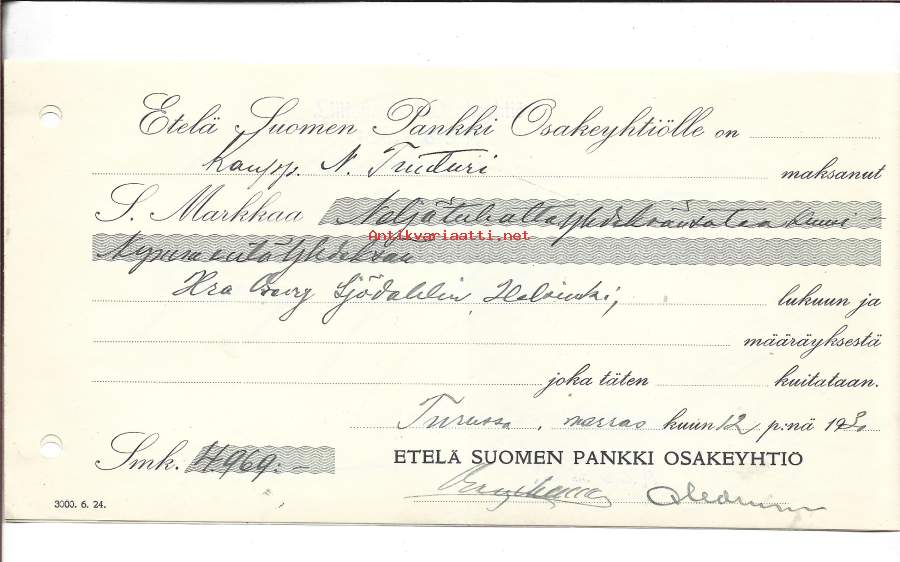 Etelä Suomen Pankki Osakeyhtiölle on
Kaupp. N. Tuuturi maksanut
S. Markkaa Neljätuhattayhdeksänsataa kuusi-
Antikvariaatti.net
kymmentäyhdeksän
Hra Georg Sjödahlin, Helsinki, lukuun ja
määräyksestä
joka täten kuitataan.
Turussa, marras kuun 12 p:nä 1930
Smk. 4.969:-
ETELÄ SUOMEN PANKKI OSAKEYHTIÖ
3000. 6. 24.